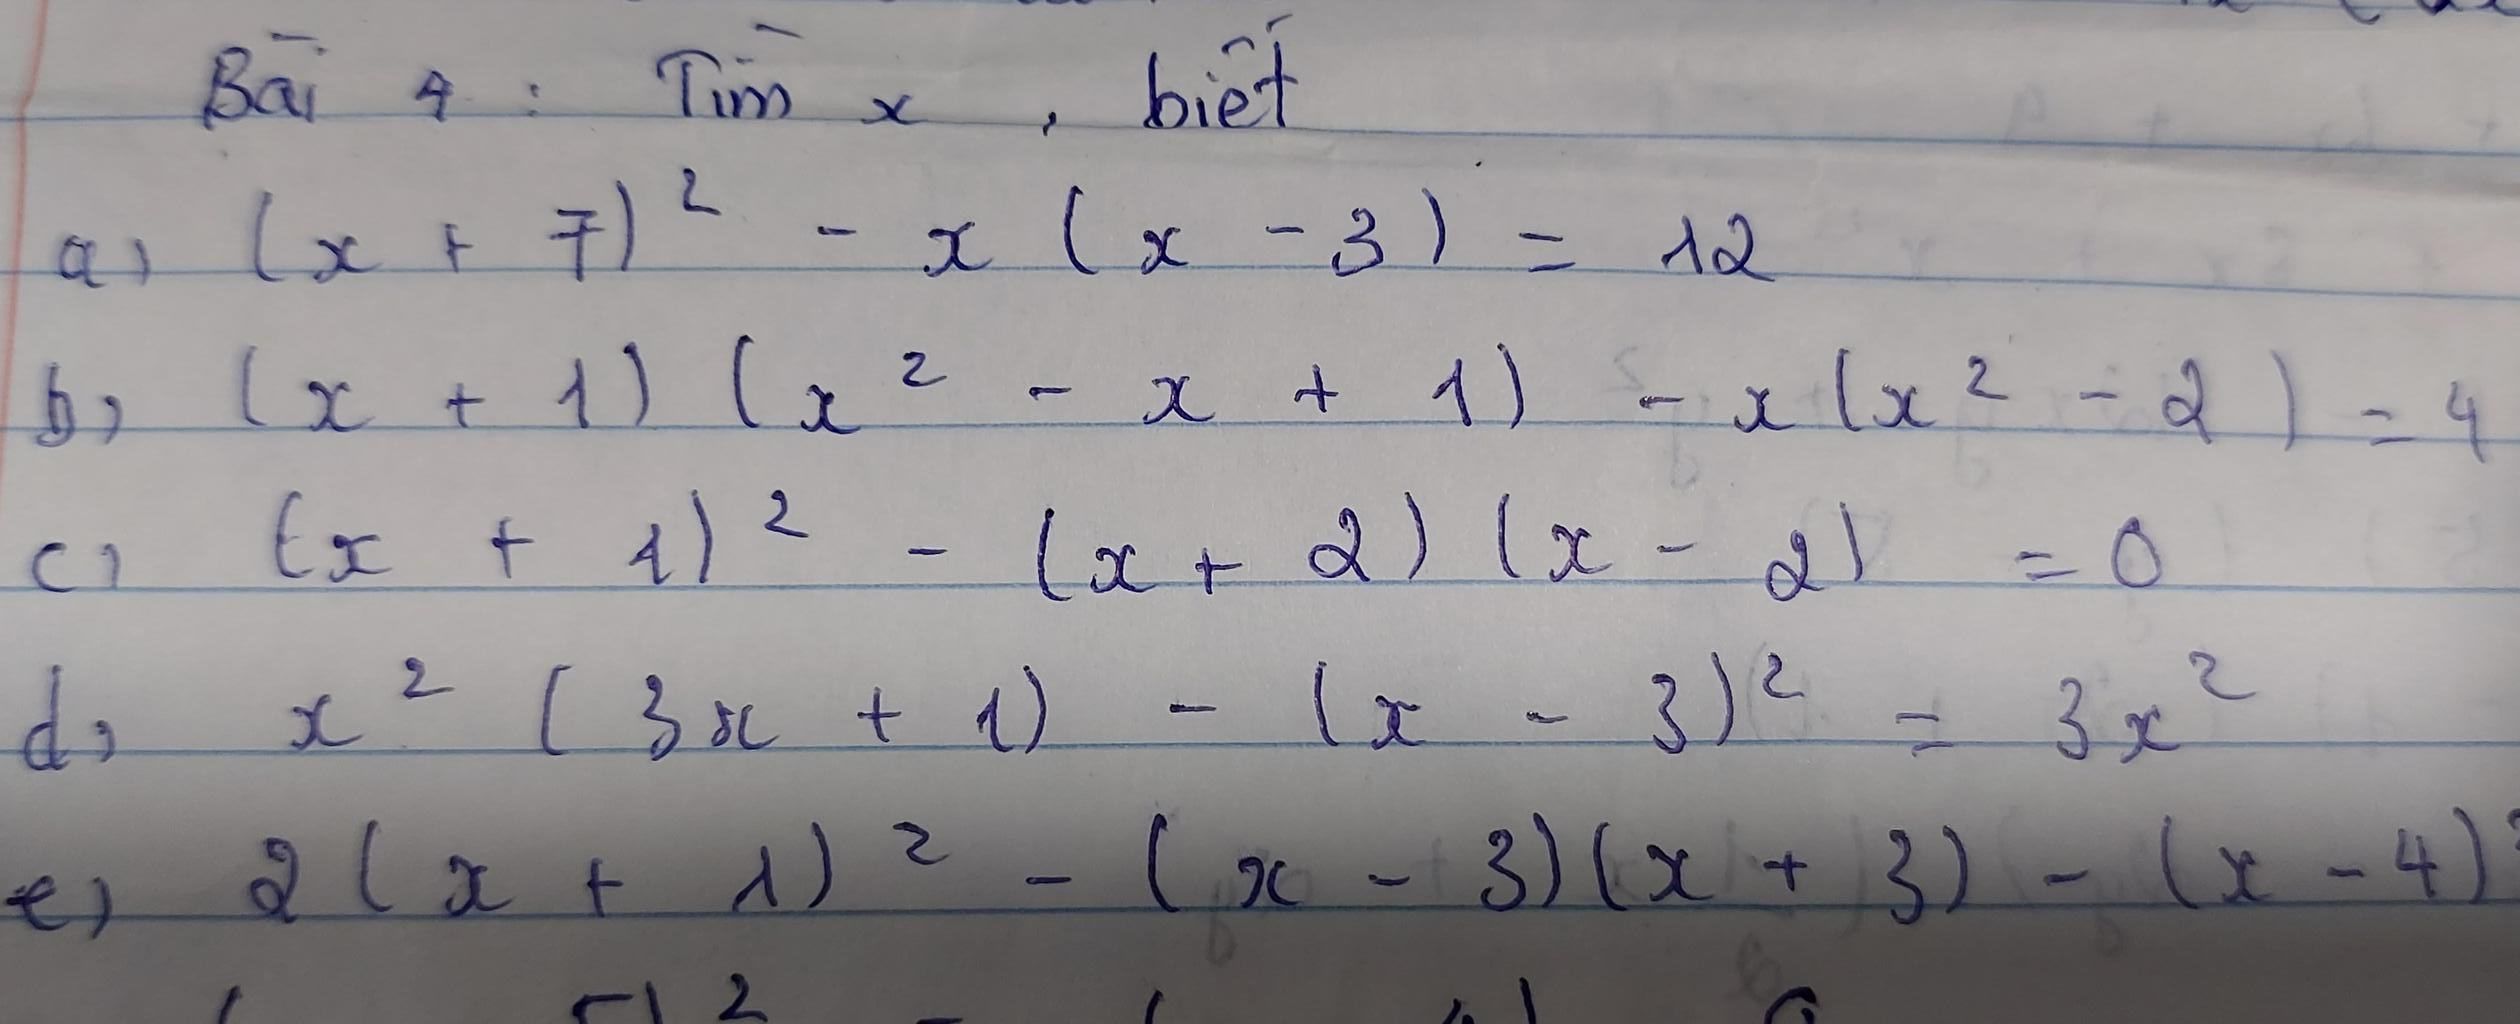 Bài 4 : Tìm x , biết
a) (x + 7)² - x (x - 3) = 12
b) (x + 1) (x² - x + 1) - x(x² - 2) = 4
c) (x + 1)² - (x + 2) (x - 2) = 0
d) x² (3x + 1) - (x - 3)² = 3x²
e) 2(x + 1)² - (x - 3)(x + 3) - (x - 4)²